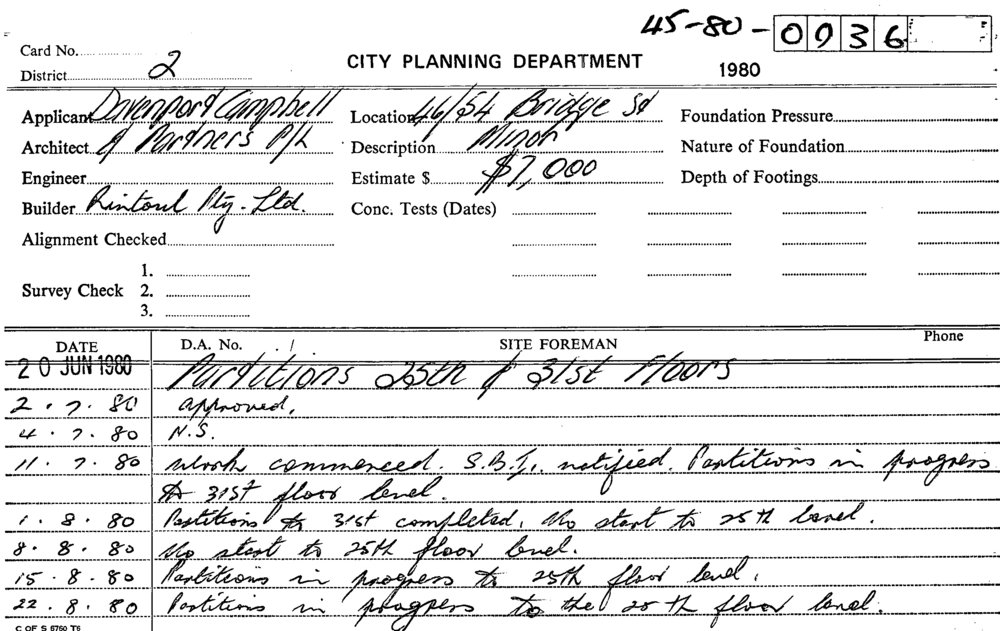 45-80-0036
Card No.
District 2
CITY PLANNING DEPARTMENT
1980
Applicant Davenport Campbell
Location 46/54 Bridge St
Foundation Pressure
Architect & Partners P/L
Description Minor
Nature of Foundation
Engineer
Estimate $ $7,000
Depth of Footings
Builder Rintoul Pty. Ltd.
Conc. Tests (Dates)
Alignment Checked
1.
Survey Check 2.
3.
DATE D.A. No. / . SITE FOREMAN Phone
20 JUN 1980 Partitions 25th & 31st Floors
2.7.80 approved.
4.7.80 N.S.
11.7.80 Work commenced. S.B.I. notified. Partitions in progress
to 31st floor level.
1.8.80 Partitions to 31st completed, No start to 25th level.
8.8.80 No start to 25th floor level.
15.8.80 Partitions in progress to 25th floor level.
22.8.80 Partitions in progress to the 25th floor level.
C OF S 6760 T6